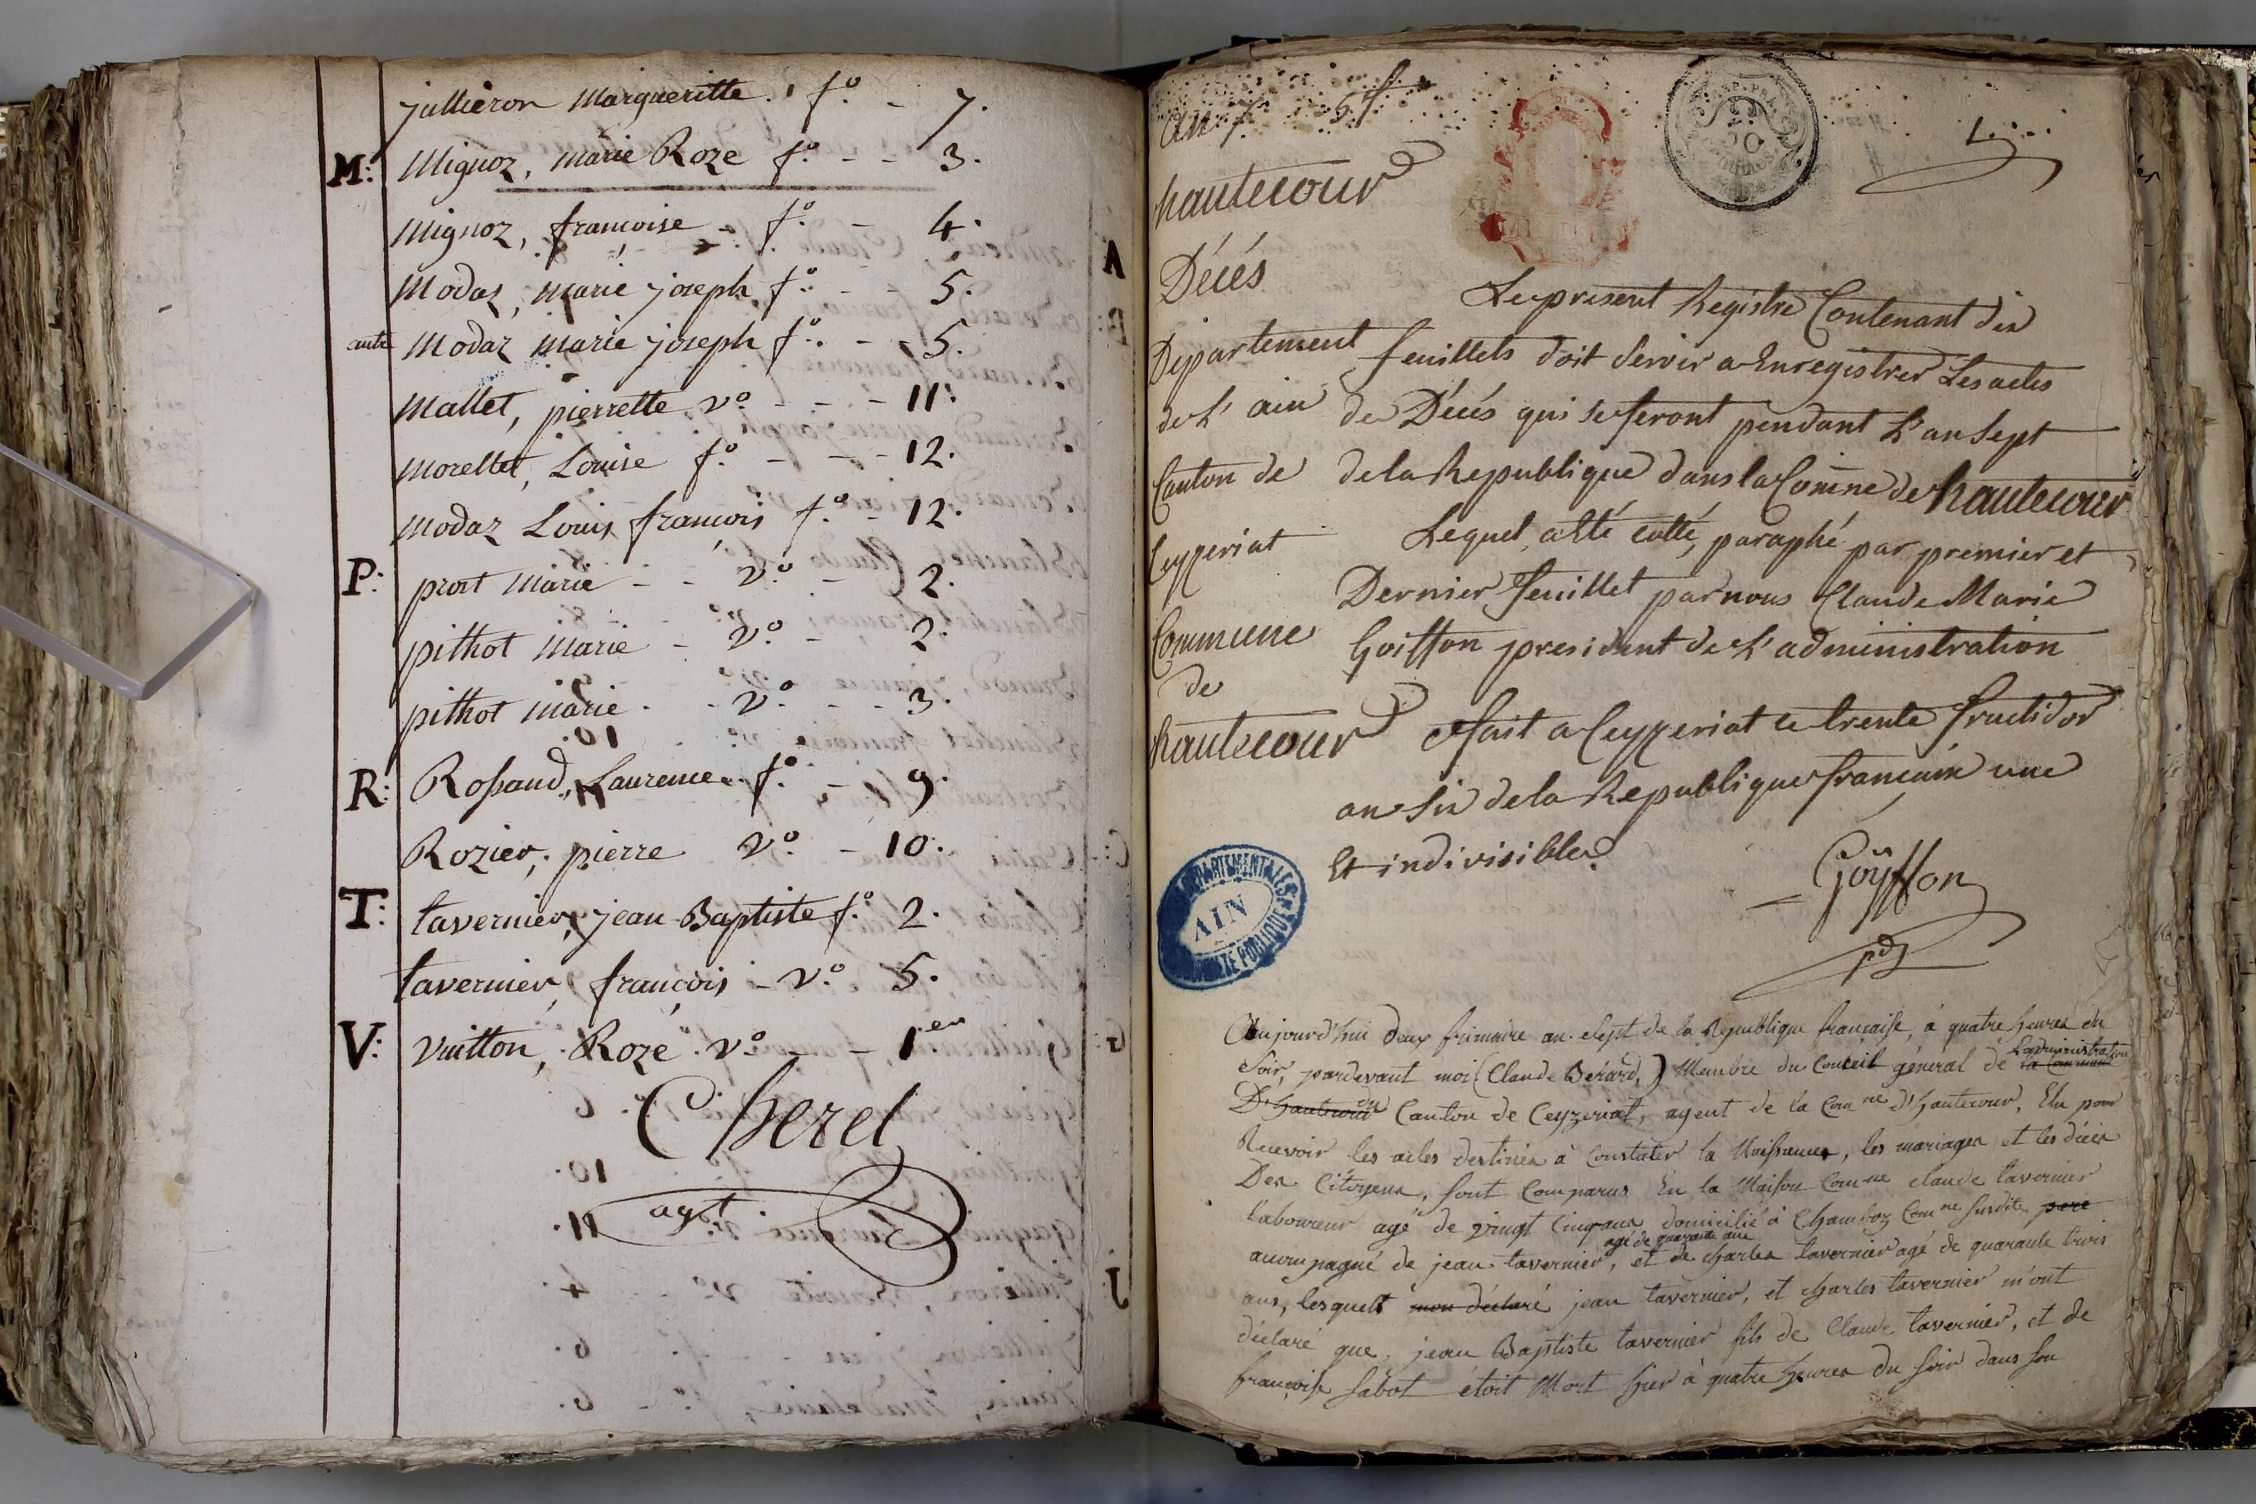 jullieron Margueritte. f.o - 7.
M: Mignoz, Marie Roze f.o - - 3.
Mignoz, francoise - f.o - 4.
Modaz, Marie joseph f.o - - 5.
autre Modaz Marie joseph f.o - - 5.
Mallet, pierrette v.o - - - 11.
Morellet, Louise f.o - - - 12.
Modaz Louis françois f.o - 12.
P: prost Marie - - v.o - 2.
pithot Marie - v.o - 2.
pithot Marie - v.o - - 3.
R: Rossand, Laurence f.o - 9.
Rozier, pierre v.o - 10.
T: tavernier, jean Baptiste f.o 2.
tavernier, françois - v.o 5.
V: Vuitton, Roze. v.o - - 1er
Cherel
agt.
an 7
hautecour
Décés
Département
de L'ain
Canton de
Ceyzeriat
Commune
de
hautecour
Le present Registre Contenant dix
feuillets doit Servir a Enregistrer Les actes
de Décés qui se feront pendant L'an Sept
de la Republique dans la Comne de hautecour
Lequel a Eté cotté, paraphé par premier et
Dernier feuillet par nous Claude Marie
Goiffon president de L'administration
fait a Ceyzeriat ce trente fructidor
an Six de la Republique francaise une
Et indivisible.
Goÿffon
pdt
DEPARTEMENTALES
AIN
PUBLIQUE
Aujourd'hui deux frimaire an Sept de la Republique française, à quatre heures du
Soir, pardevant moi (Claude Berard,) Membre du Conseil général de la Commune L'administration
D'hautecour du Canton de Ceyzeriat, agent de la Comne d'hautecour, Elu pour
Recevoir les actes destinés à Constater la Naissance, les mariages et les décès
Des Citoyens, sont Comparus En la Maison Comne claude tavernier
laboureur agé de vingt Cinq ans domicilié à Chamboz Comne susdite pere
accompagné de jean tavernier, agé de quarante ans et de charles tavernier agé de quarante trois
ans, lesquels mon déclaré jean tavernier, et charles tavernier m'ont
déclaré que, jean Baptiste tavernier fils de Claude tavernier, et de
françoise Sabot étoit Mort hier à quatre heures du Soir dans son